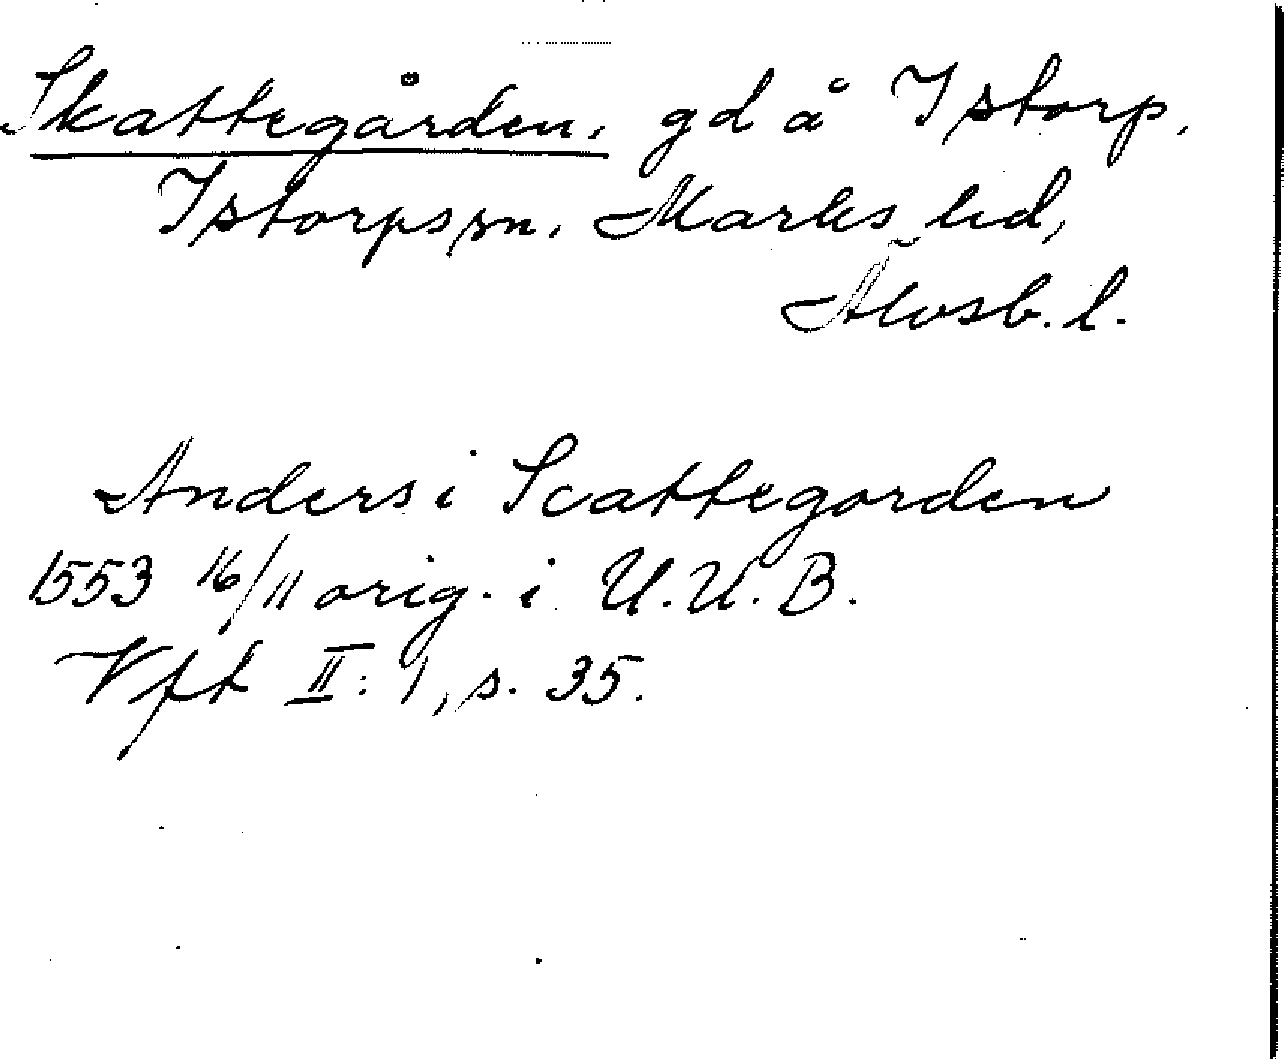 Skattegården, gd å Istorp,
Istorps sn. Marks hd,
Älvsb. l.
Anders i Scattegorden
1553 16/11 orig. i U.U.B.
Vft II: 1, s. 35.